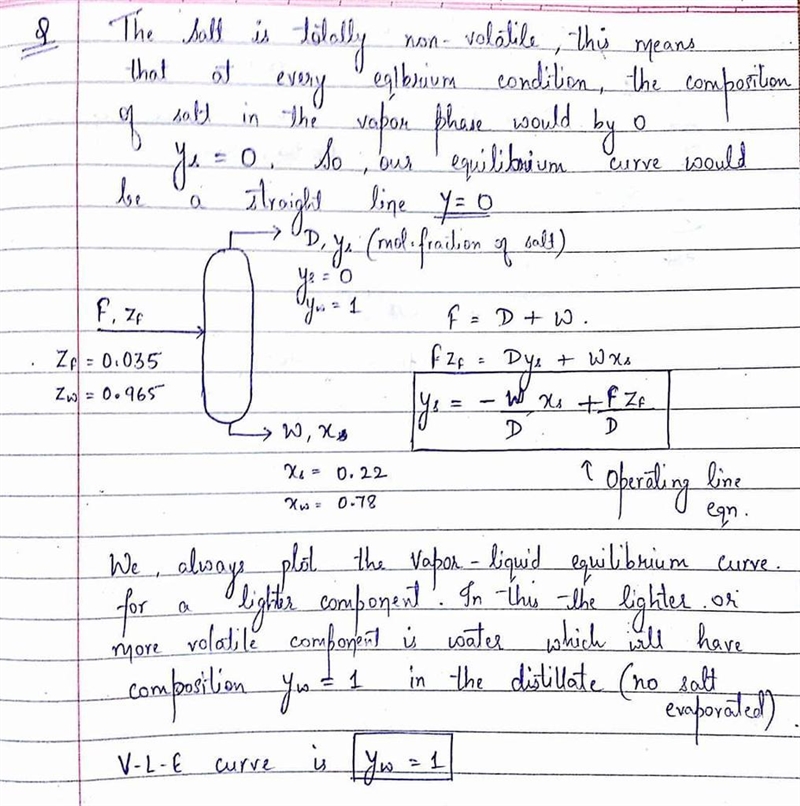 Q The salt is totally non-volatile, this means
that at every eqlbrium condition, the composition
of salt in the vapor phase would by 0
ys = 0. So, our equilibrium curve would
be a straight line y = 0
D, ys (mol. fraction of salt)
ys = 0
yw = 1
F, ZF
ZF = 0.035
Zw = 0.965
W, xs
xs = 0.22
xw = 0.78
F = D + W.
FZF = Dys + Wxs
ys = - W/D xs + FZF/D
↑ Operating line
eqn.
We, always plot the vapor-liquid equilibrium curve.
for a lighter component. In this the lighter or
more volatile component is water which will have
composition yw = 1 in the distillate (no salt
evaporated).
V-L-E curve is yw = 1